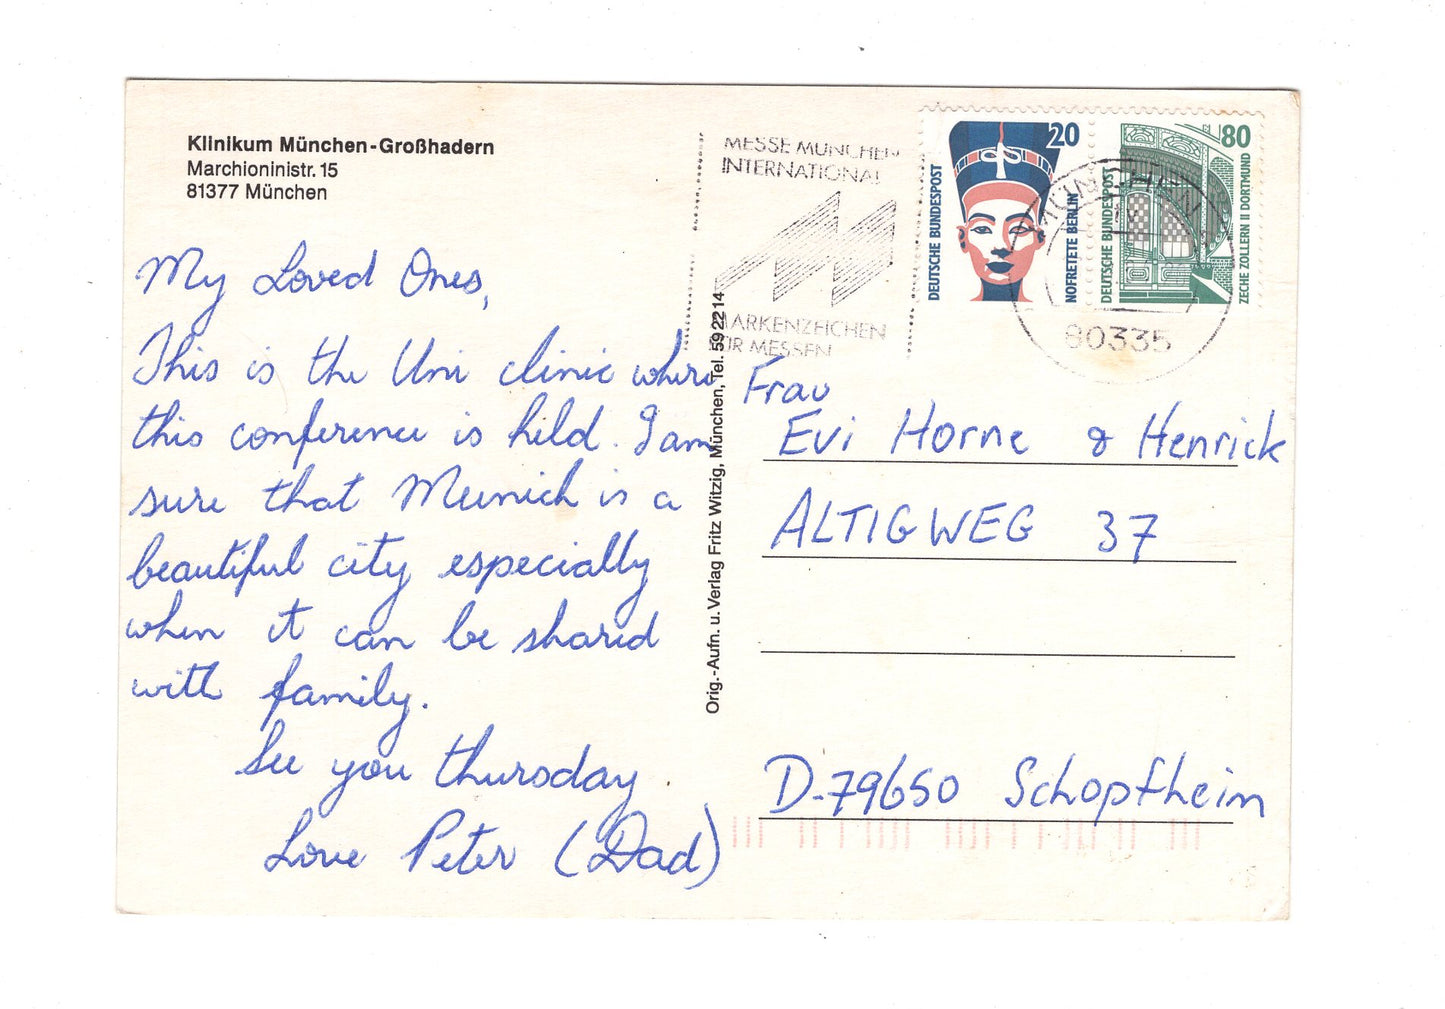 Klinikum München-Großhadern
Marchioninistr. 15
81377 München
My Loved Ones,
This is the Uni clinic where
this conference is held. I am
sure that Munich is a
beautiful city especially
when it can be shared
with family.
See you thursday
Love Peter (Dad)
Orig.-Aufn. u. Verlag Fritz Witzig, München, Tel. 592214
MESSE MÜNCHEN
INTERNATIONAL
MARKENZEICHEN
FÜR MESSEN
20
DEUTSCHE BUNDESPOST
NOFRETETE BERLIN
80
DEUTSCHE BUNDESPOST
ZECHE ZOLLERN II DORTMUND
MÜNCHEN
80335
Frau
Evi Horne & Henrick
ALTIGWEG 37
D-79650 Schopfheim